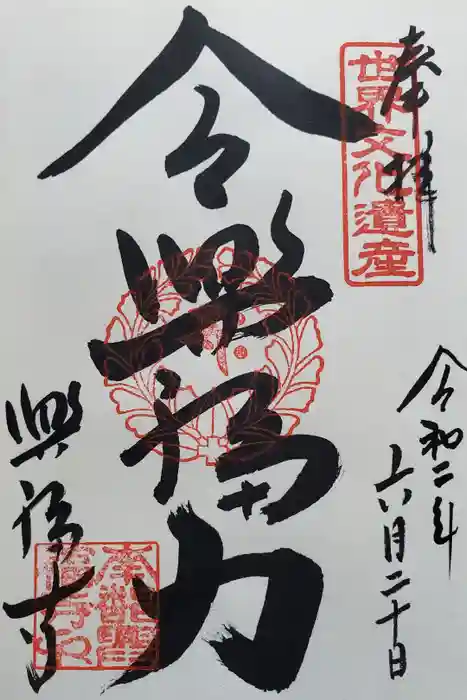 奉拝
世界文化遺産
令和二年
六月二十日
令興福力
興福寺